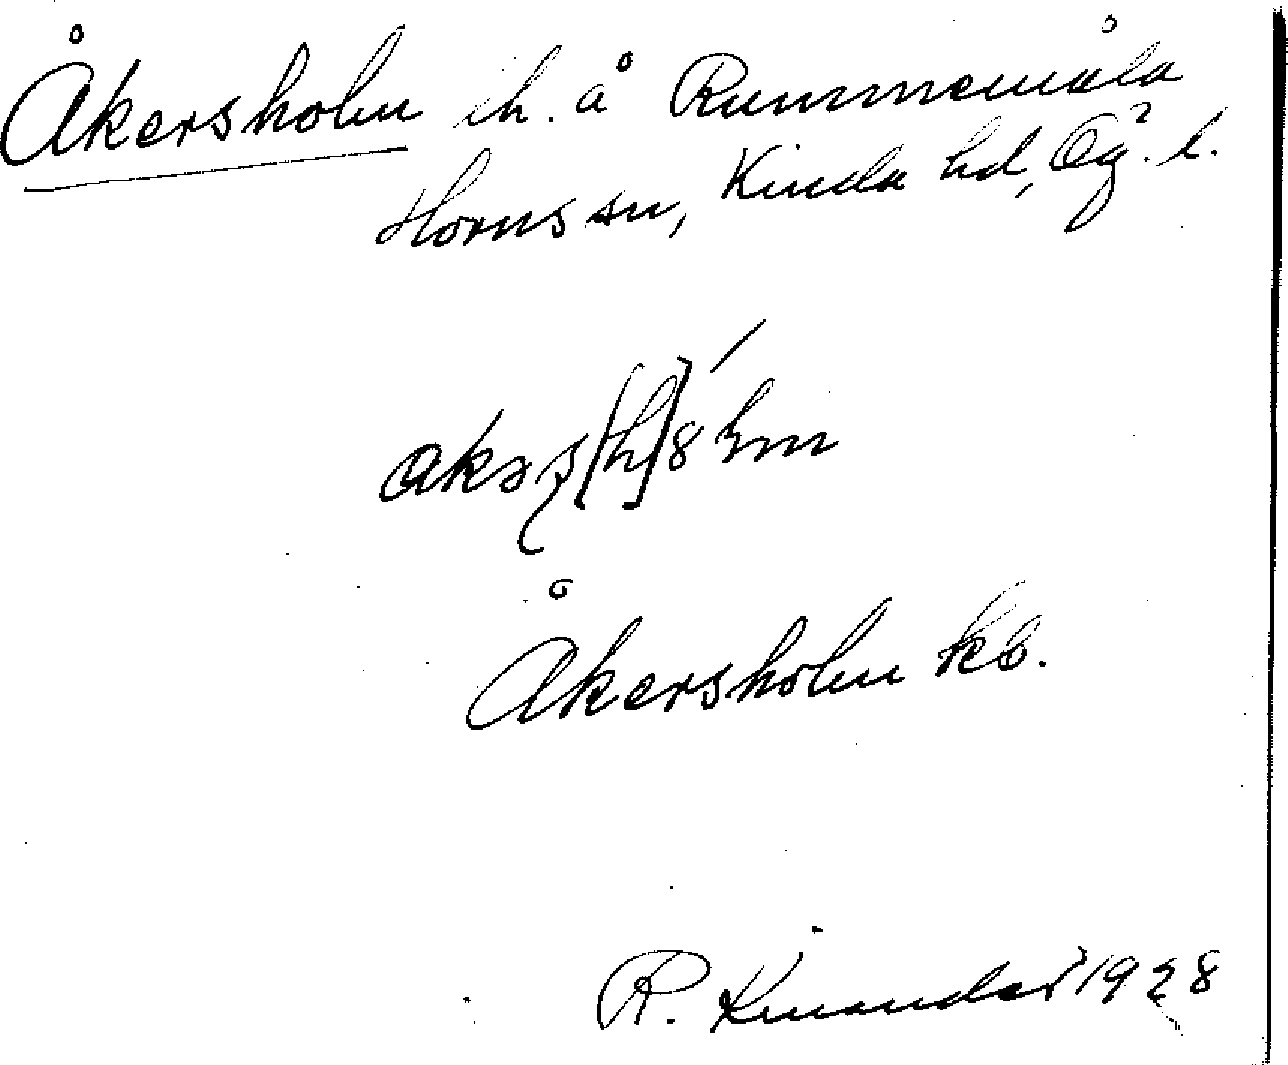 Åkersholm lh. å Rummemåla
Horns sn, Kinda hd, Ög. l.
Åkersholm kb.
R. Kinander 1928